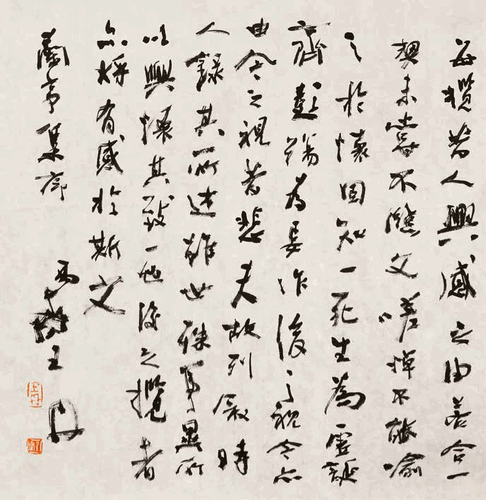 每攬昔人興感之由若合一
契未嘗不臨文嗟悼不能喻
之於懷固知一死生為虛誕
齊彭殤為妄作後之視今亦
由今之視昔悲夫故列敘時
人錄其所述雖世殊事異所
以興懷其致一也後之攬者
亦將有感於斯文
蘭亭集序
王丹